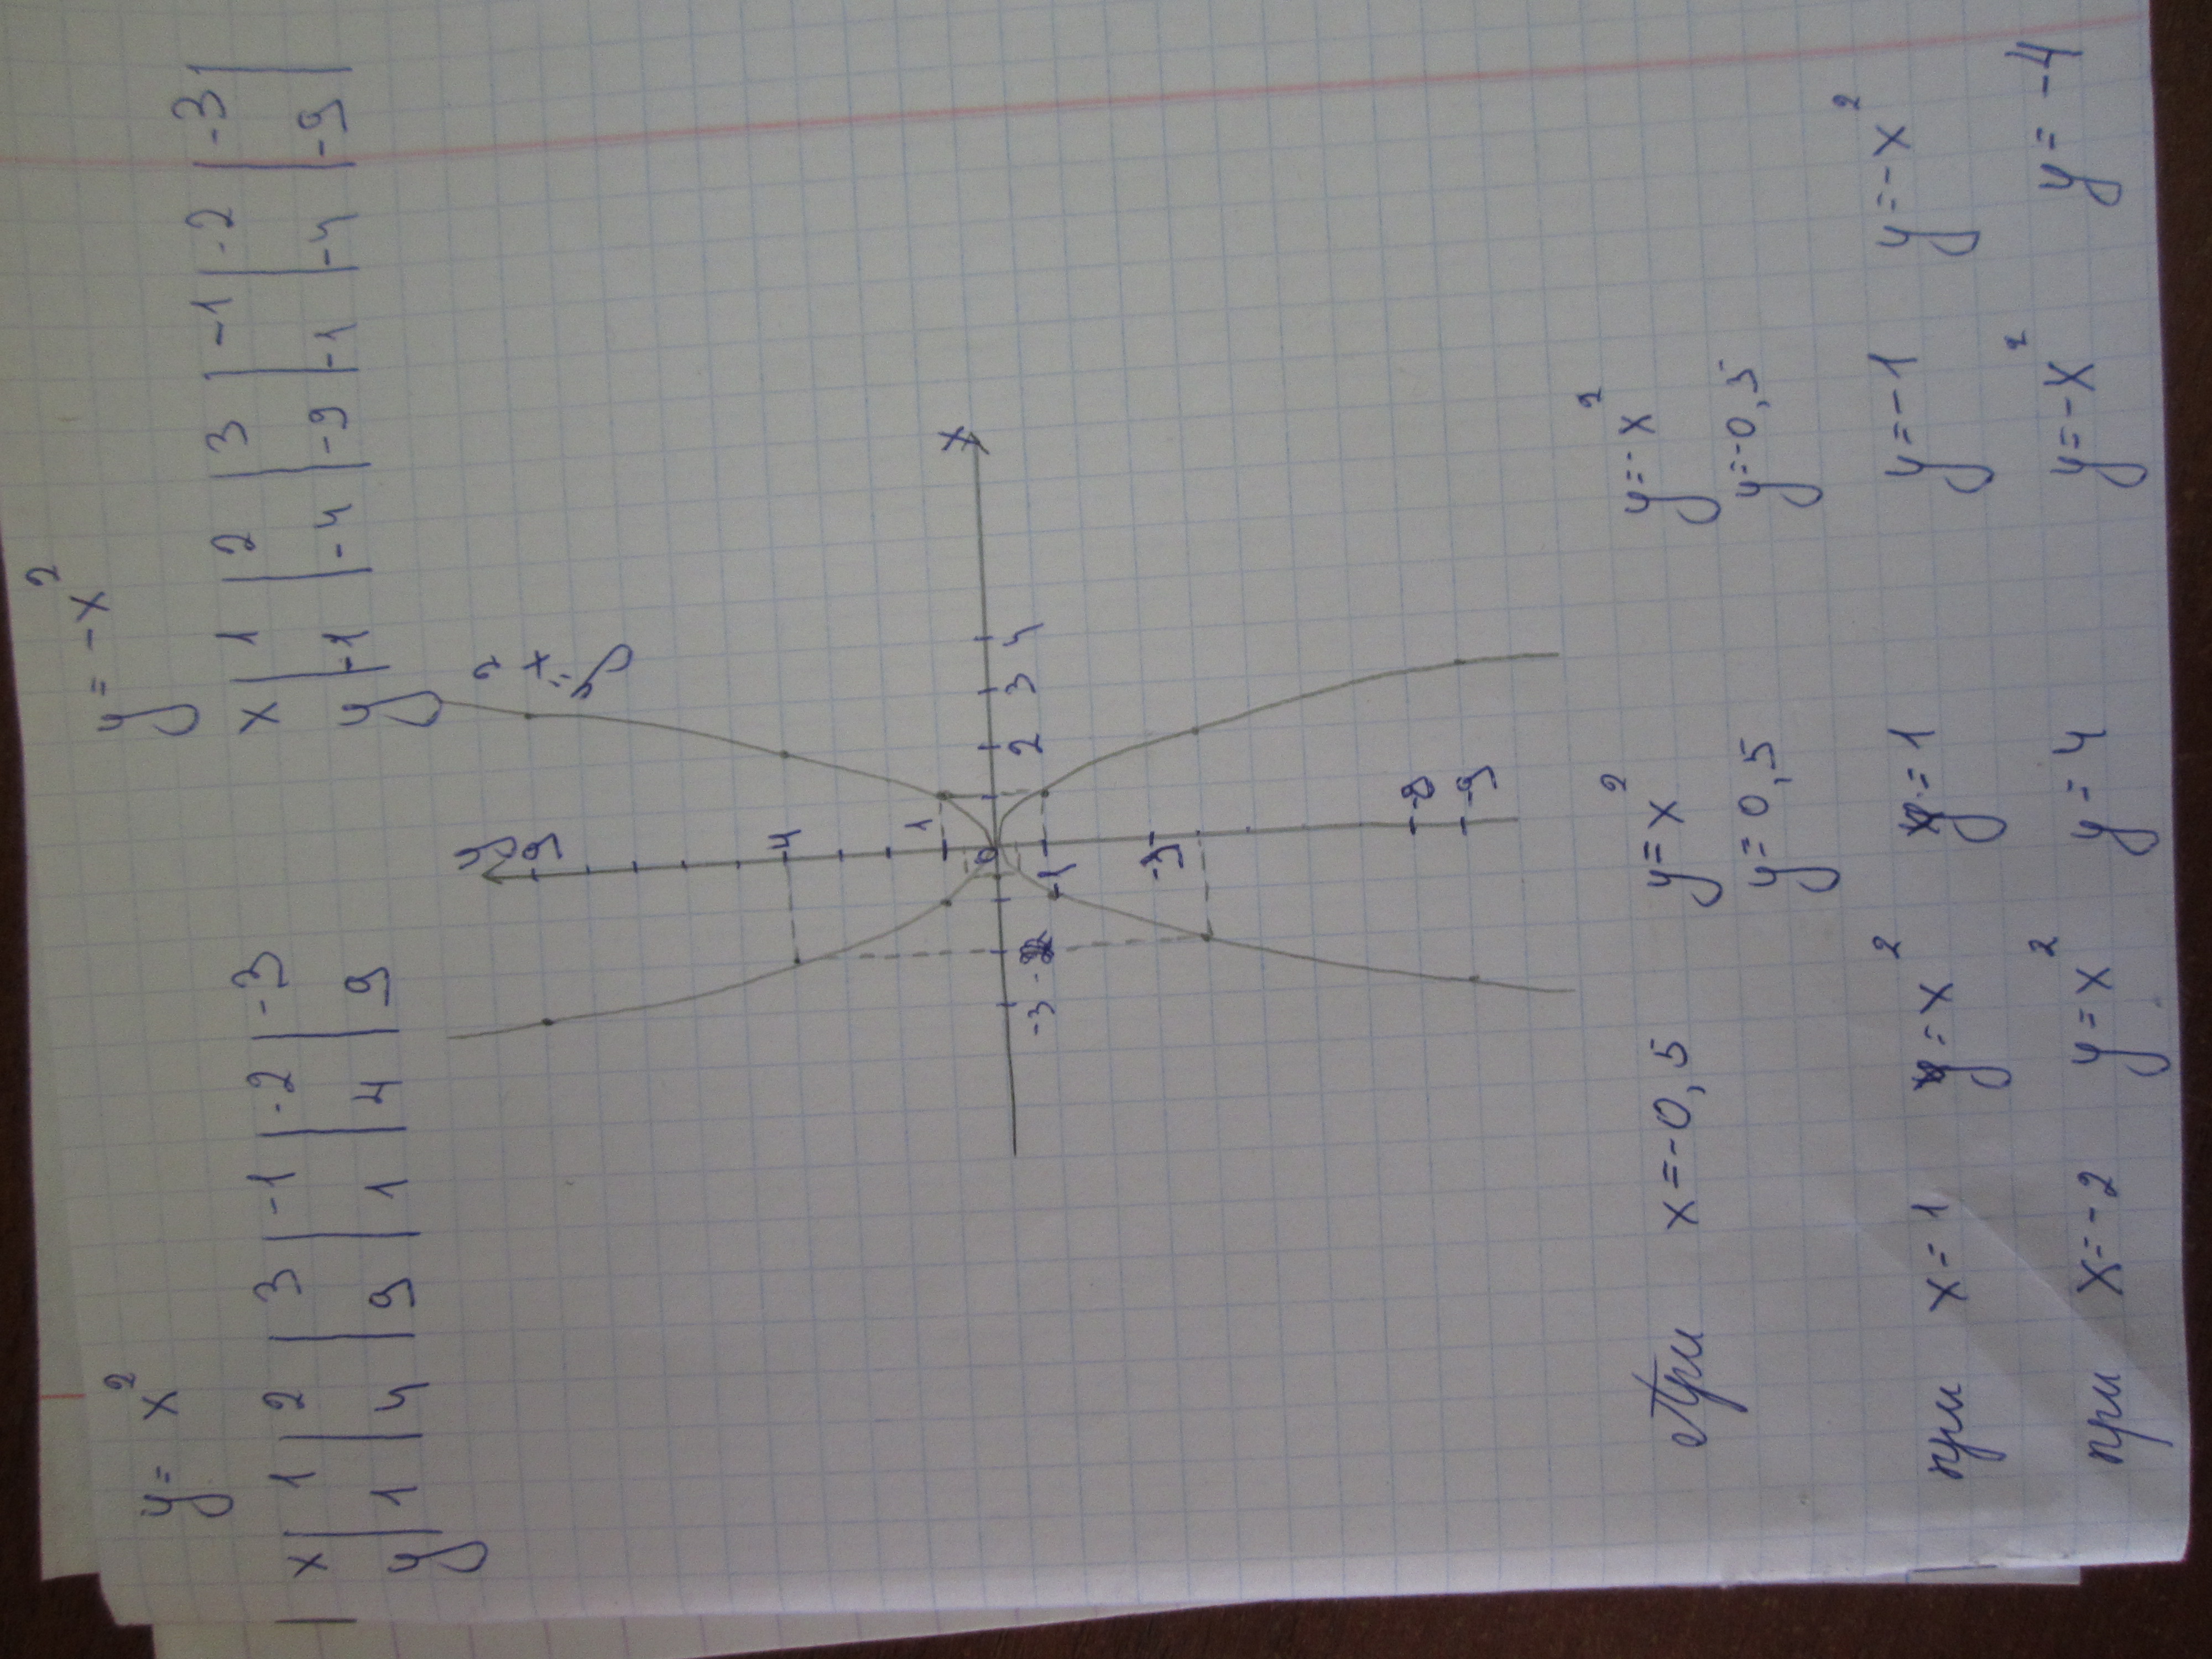 y = x² y = -x²
x | 1 | 2 | 3 | -1 | -2 | -3
y | 1 | 4 | 9 | 1 | 4 | 9
x | 1 | 2 | 3 | -1 | -2 | -3 |
y | -1 | -4 | -9 | -1 | -4 | -9 |
y
9
y = x²
4
1
0
x
-3 -2 2 3 4
-1
-3
-8
-9
При x = -0,5 y = x² y = -x²
y = 0,5 y = -0,5
при x = 1 y = x² y = 1 y = -1 y = -x²
при x = -2 y = x² y = 4 y = -x² y = -4